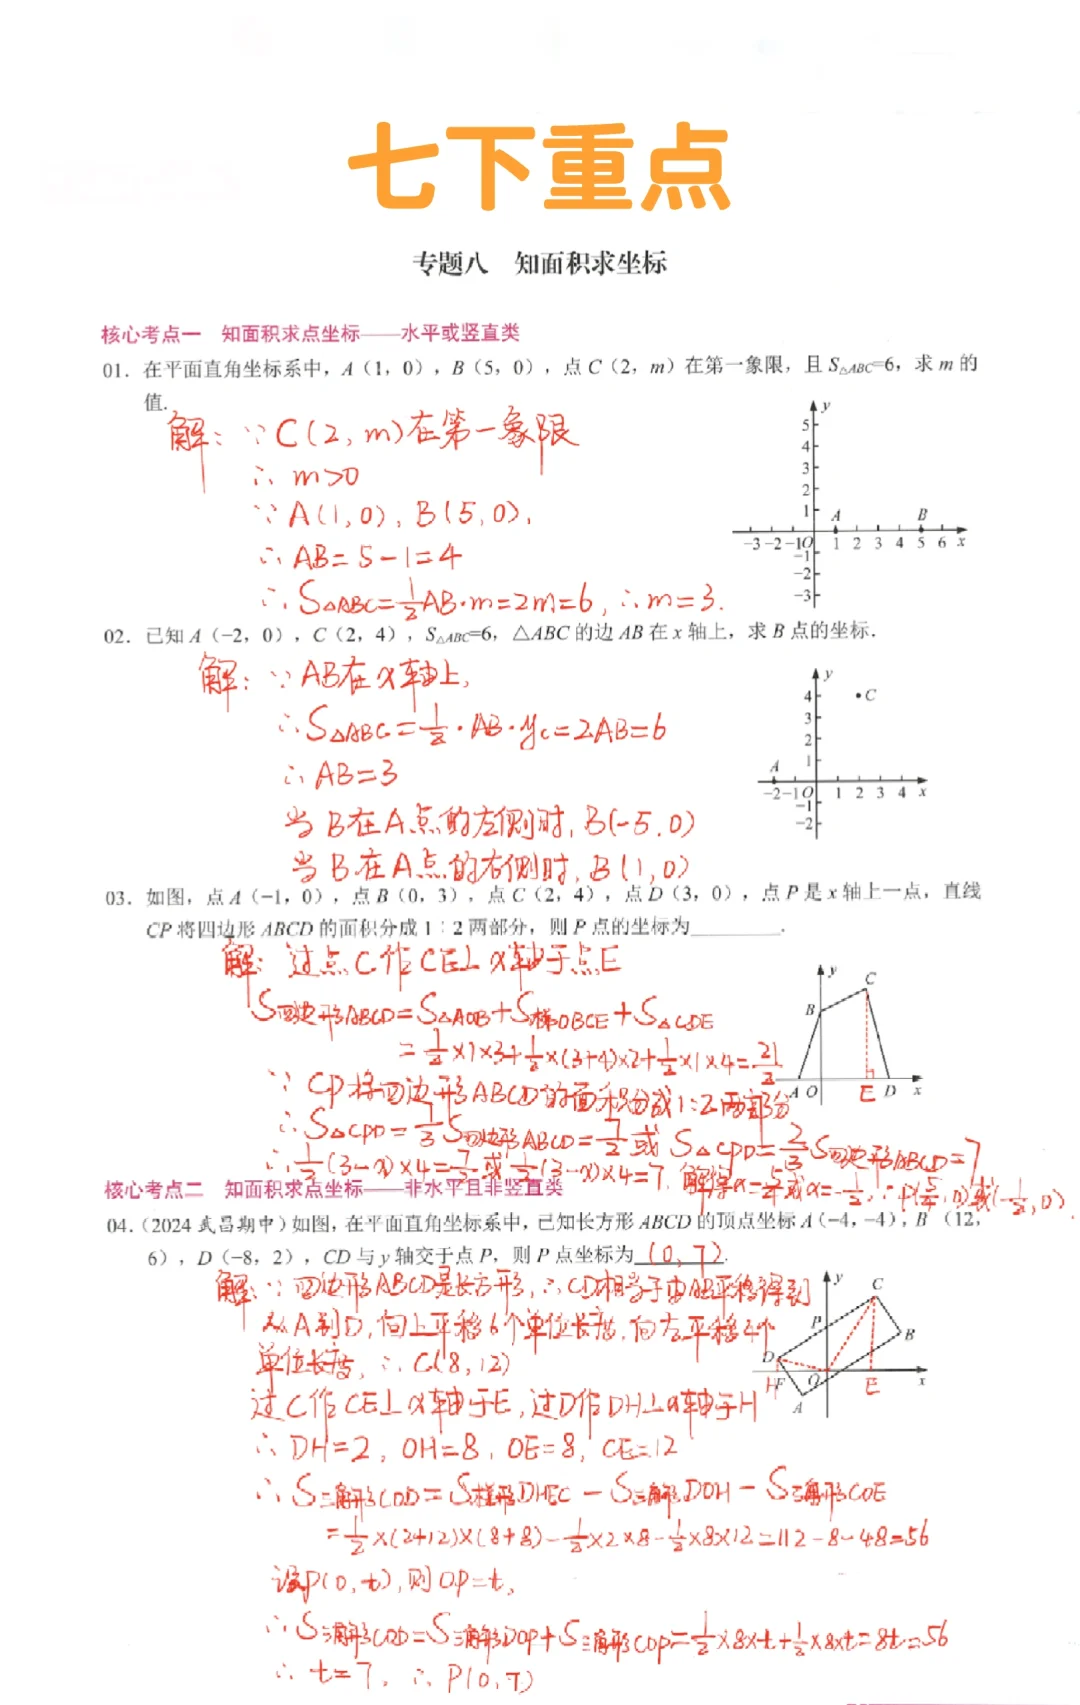 七下重点
专题八 知面积求坐标
核心考点一 知面积求点坐标——水平或竖直类
01. 在平面直角坐标系中，A（1，0），B（5，0），点 C（2，m）在第一象限，且 S△ABC=6，求 m 的
值.
解：∵C(2,m)在第一象限
∴m>0
∵A(1,0)，B(5,0)，
∴AB=5-1=4
∴S△ABC=1/2AB·m=2m=6，∴m=3.
y
5
4
3
2
1
A
B
-3 -2 -1 O 1 2 3 4 5 6 x
-1
-2
-3
02. 已知 A（-2，0），C（2，4），S△ABC=6，△ABC 的边 AB 在 x 轴上，求 B 点的坐标.
解：∵AB在x轴上，
∴S△ABC=1/2·AB·yc=2AB=6
∴AB=3
当B在A点的左侧时，B(-5,0)
当B在A点的右侧时，B(1,0)
y
4
C
3
2
1
A
-2 -1 O 1 2 3 4 x
-1
-2
03. 如图，点 A（-1，0），点 B（0，3），点 C（2，4），点 D（3，0），点 P 是 x 轴上一点，直线
CP 将四边形 ABCD 的面积分成 1∶2 两部分，则 P 点的坐标为________.
解：过点C作CE⊥x轴于点E
S四边形ABCD=S△AOB+S梯OBCE+S△CDE
=1/2×1×3+1/2×(3+4)×2+1/2×1×4=21/2
∵CP将四边形ABCD的面积分成1:2两部分
∴S△CPD=1/3S四边形ABCD=7/2或S△CPD=2/3S四边形ABCD=7
∴1/2(3-x)×4=7/2或1/2(3-x)×4=7，解得x=5/4或x=-1/2，∴P(5/4,0)或(-1/2,0)
y
C
B
A O E D x
核心考点二 知面积求点坐标——非水平且非竖直类
04.（2024 武昌期中）如图，在平面直角坐标系中，已知长方形 ABCD 的顶点坐标 A（-4，-4），B（12，
6），D（-8，2），CD 与 y 轴交于点 P，则 P 点坐标为(0,7).
解：∵四边形ABCD是长方形，∴CD相当于由AB平移得到
从A到D，向上平移6个单位长度，向左平移4个
单位长度，∴C(8,12)
过C作CE⊥x轴于E，过D作DH⊥x轴于H
∴DH=2，OH=8，OE=8，CE=12
∴S三角形COD=S梯形DHEC-S三角形DOH-S三角形COE
=1/2×(2+12)×(8+8)-1/2×2×8-1/2×8×12=112-8-48=56
设P(0,t)，则OP=t，
∴S三角形COD=S三角形DOP+S三角形COP=1/2×8×t+1/2×8×t=8t=56
∴t=7，∴P(0,7)
y
C
P
B
D
H F O E x
A